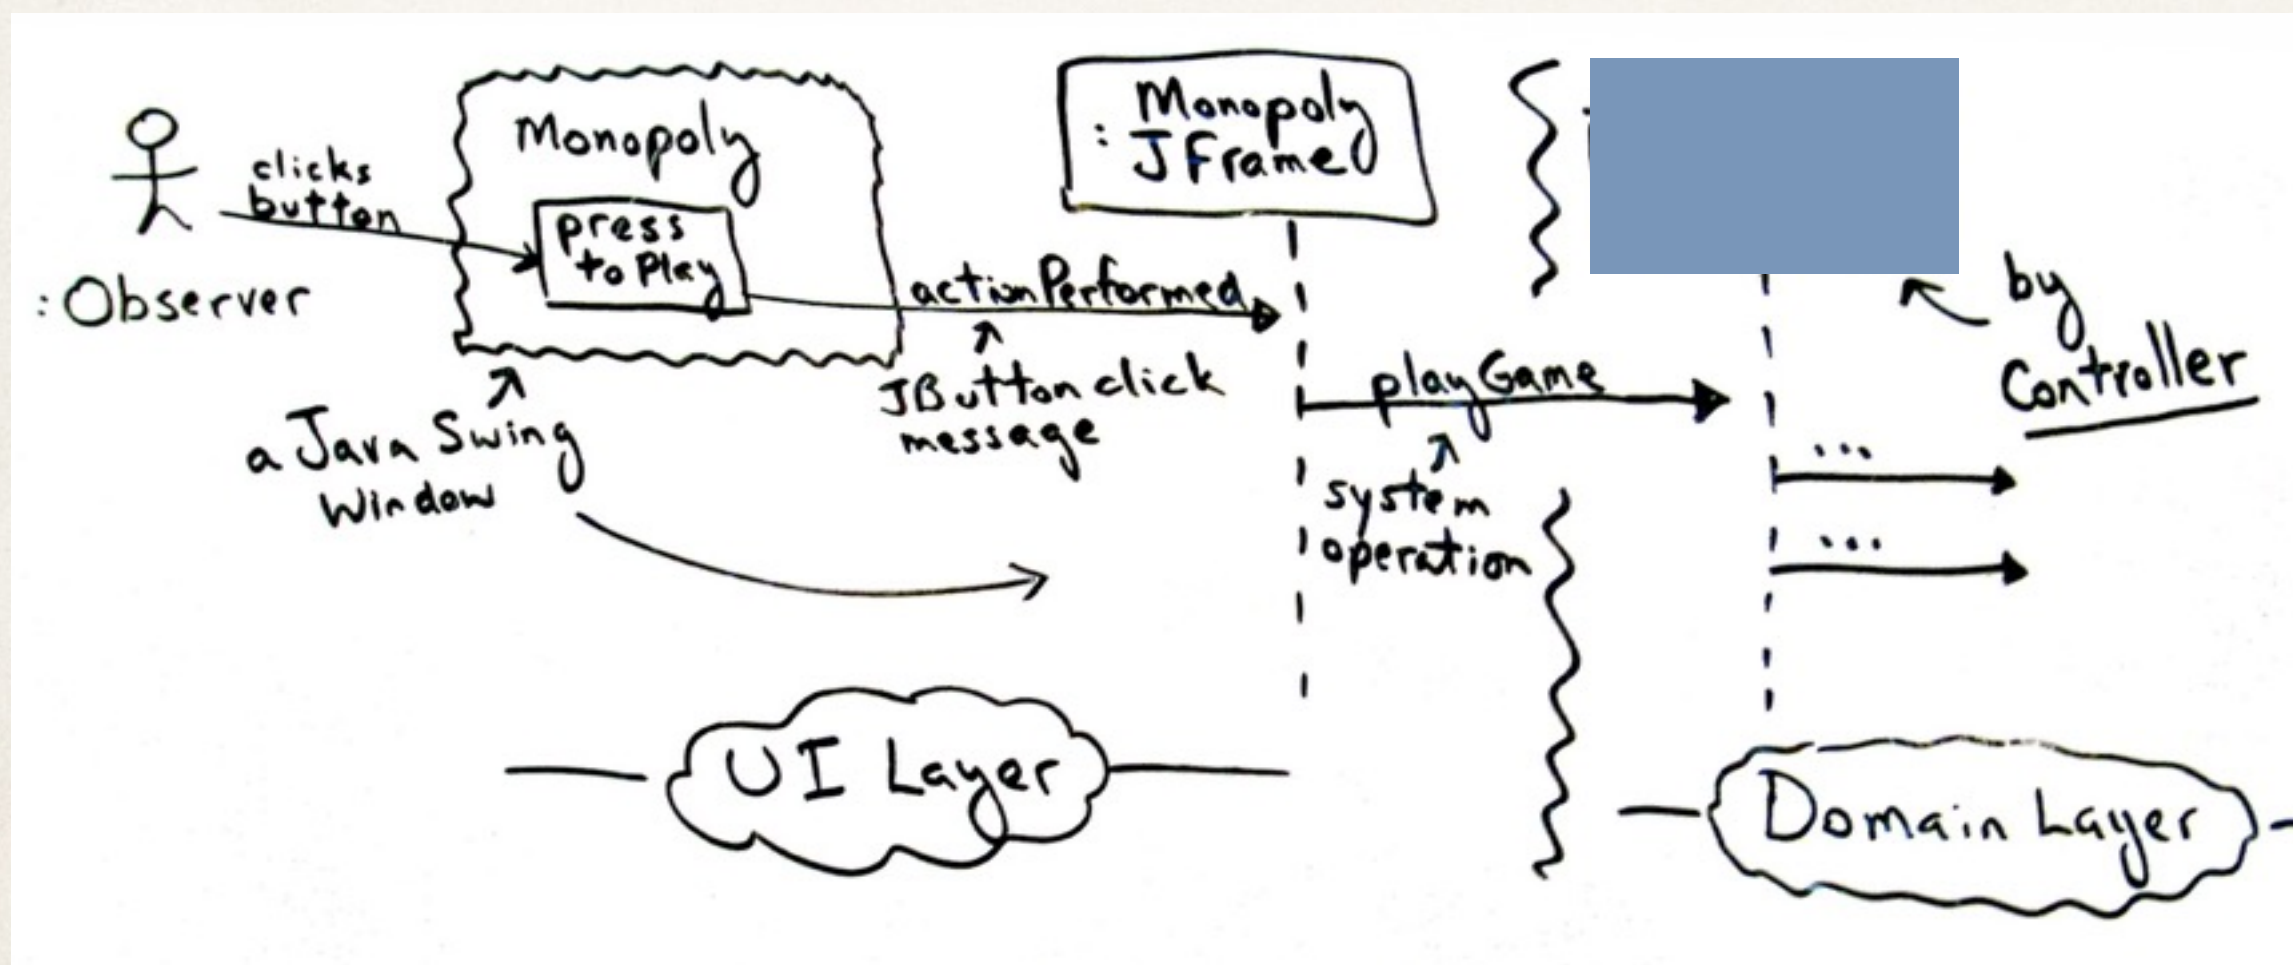 clicks
button
:Observer
Monopoly
press
to Play
a Java Swing
Window
actionPerformed
JButton click
message
: Monopoly
JFrame
playGame
system
operation
by
Controller
...
...
UI Layer
Domain Layer